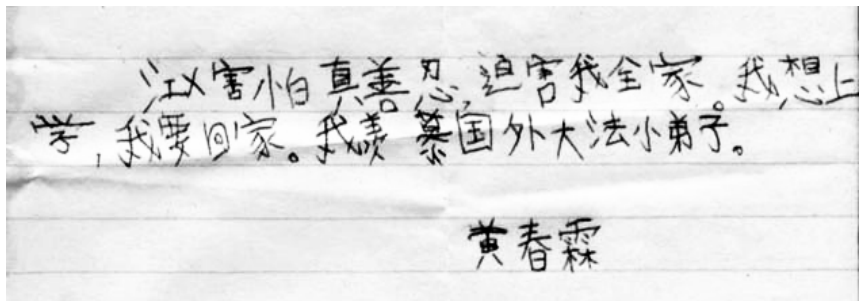 江X害怕真善忍,迫害我全家。我想上
学,我要回家。我羡慕国外大法小弟子。
黄春霖